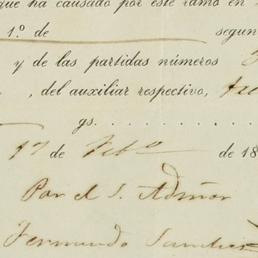 que ha causado por este ramo en
1.º de segun
y de las partidas números
, del auxiliar respectivo,
gs.
17 de Febº de 18
Por el S. Admor
Fernando